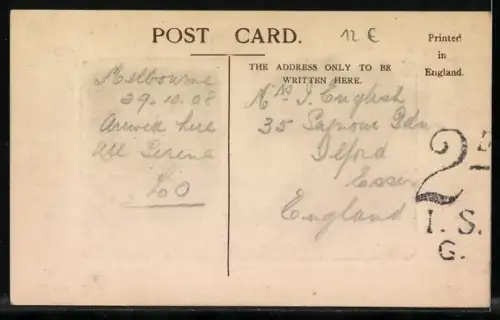 POST CARD.
12 €
Printed
in
England.
THE ADDRESS ONLY TO BE
WRITTEN HERE.
Melbourne
29.10.08
Arrived here
All Serene
Mrs J. English
35 Gdn
Ilford
Essex
England
2D
I.S.
G.